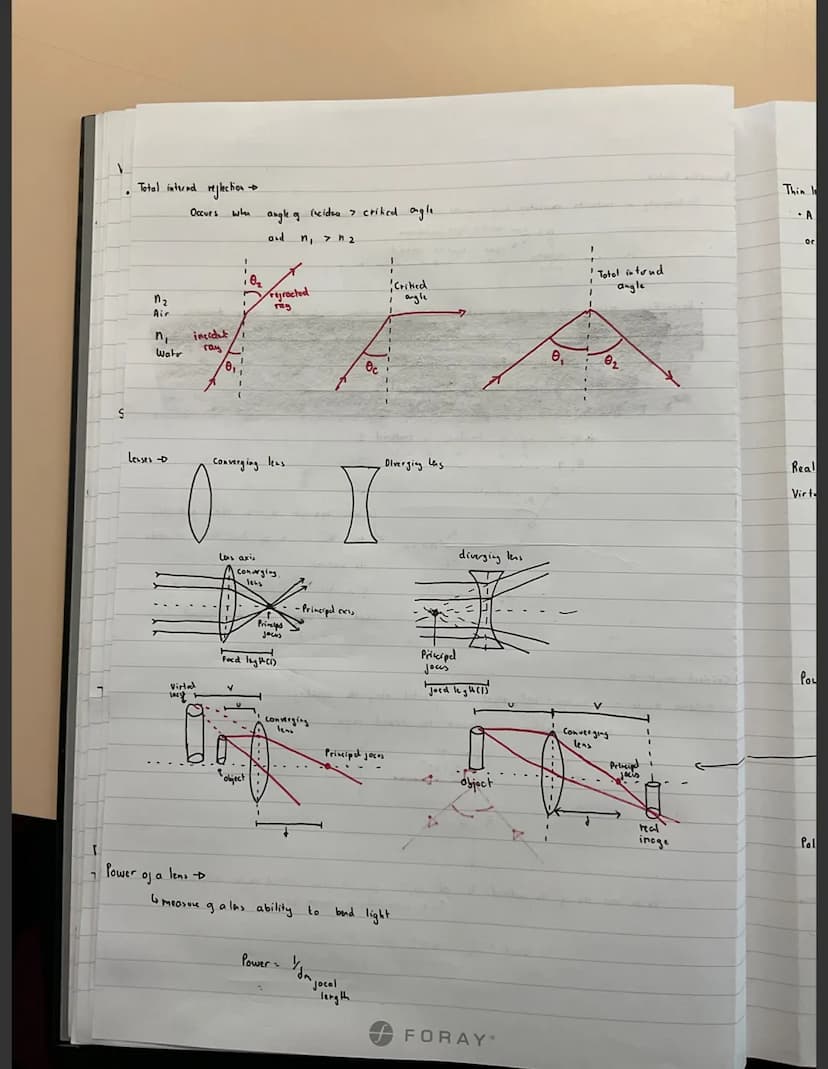 Total internal reflection →
Occurs when angle of incidence > critical angle
and n₁ > n₂
n₂
Air
n₁
Water
incident
ray
θ₁
θ₂
refracted
ray
Critical
angle
θc
Total internal
angle
θ₁
θ₂
Lenses →
Converging lens
Diverging lens
Lens axis
Converging
lens
Principal axis
Principal
focus
Focal length(f)
diverging lens
Principal
focus
focal length(f)
Virtual
image
v
u
Converging
lens
Principal focus
object
f
u
v
Converging
lens
Principal
focus
object
f
real
image
Power of a lens →
↳ measure of a lens ability to bend light
Power = 1/
focal
length
FORAY
Thin
• A
or
Real
Virt
Pow
Pol